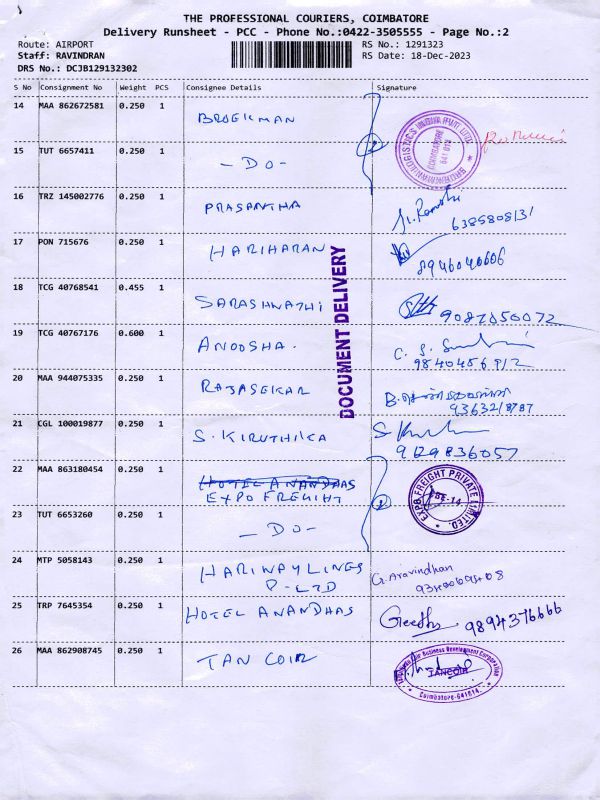 THE PROFESSIONAL COURIERS, COIMBATORE
Delivery Runsheet - PCC - Phone No.:0422-3505555 - Page No.:2
Route: AIRPORT
RS No.: 1291323
Staff: RAVINDRAN
RS Date: 18-Dec-2023
DRS No.: DCJB129132302
S No Consignment No Weight PCS Consignee Details Signature
14 MAA 862672581 0.250 1 BROEKMAN
15 TUT 6657411 0.250 1 - DO -
COIMBATORE
641 014
16 TRZ 145002776 0.250 1 PRASANTHA
6385808131
17 PON 715676 0.250 1 HARIHARAN
8946040606
18 TCG 40768541 0.455 1 SARASHWATHI
9087850072
19 TCG 40767176 0.600 1 ANOOSHA.
9840456912
20 MAA 944075335 0.250 1 RAJASEKAR
9363218787
21 CGL 100019877 0.250 1 S. KIRUTHIKA
9629836057
DOCUMENT DELIVERY
22 MAA 863180454 0.250 1 HOTEL ANANDHAS
EXPO FREIGHT
EXPO FREIGHT PRIVATE LIMITED.
CBE-14
23 TUT 6653260 0.250 1 - DO -
24 MTP 5058143 0.250 1 HARIWAYLINES
P-LTD
G. Aravindhan
25 TRP 7645354 0.250 1 HOTEL ANANDHAS
Geetha 9894376666
26 MAA 862908745 0.250 1 TAN COIR
Coir Business Development Corporation
TANCOIR
Coimbatore-641014.